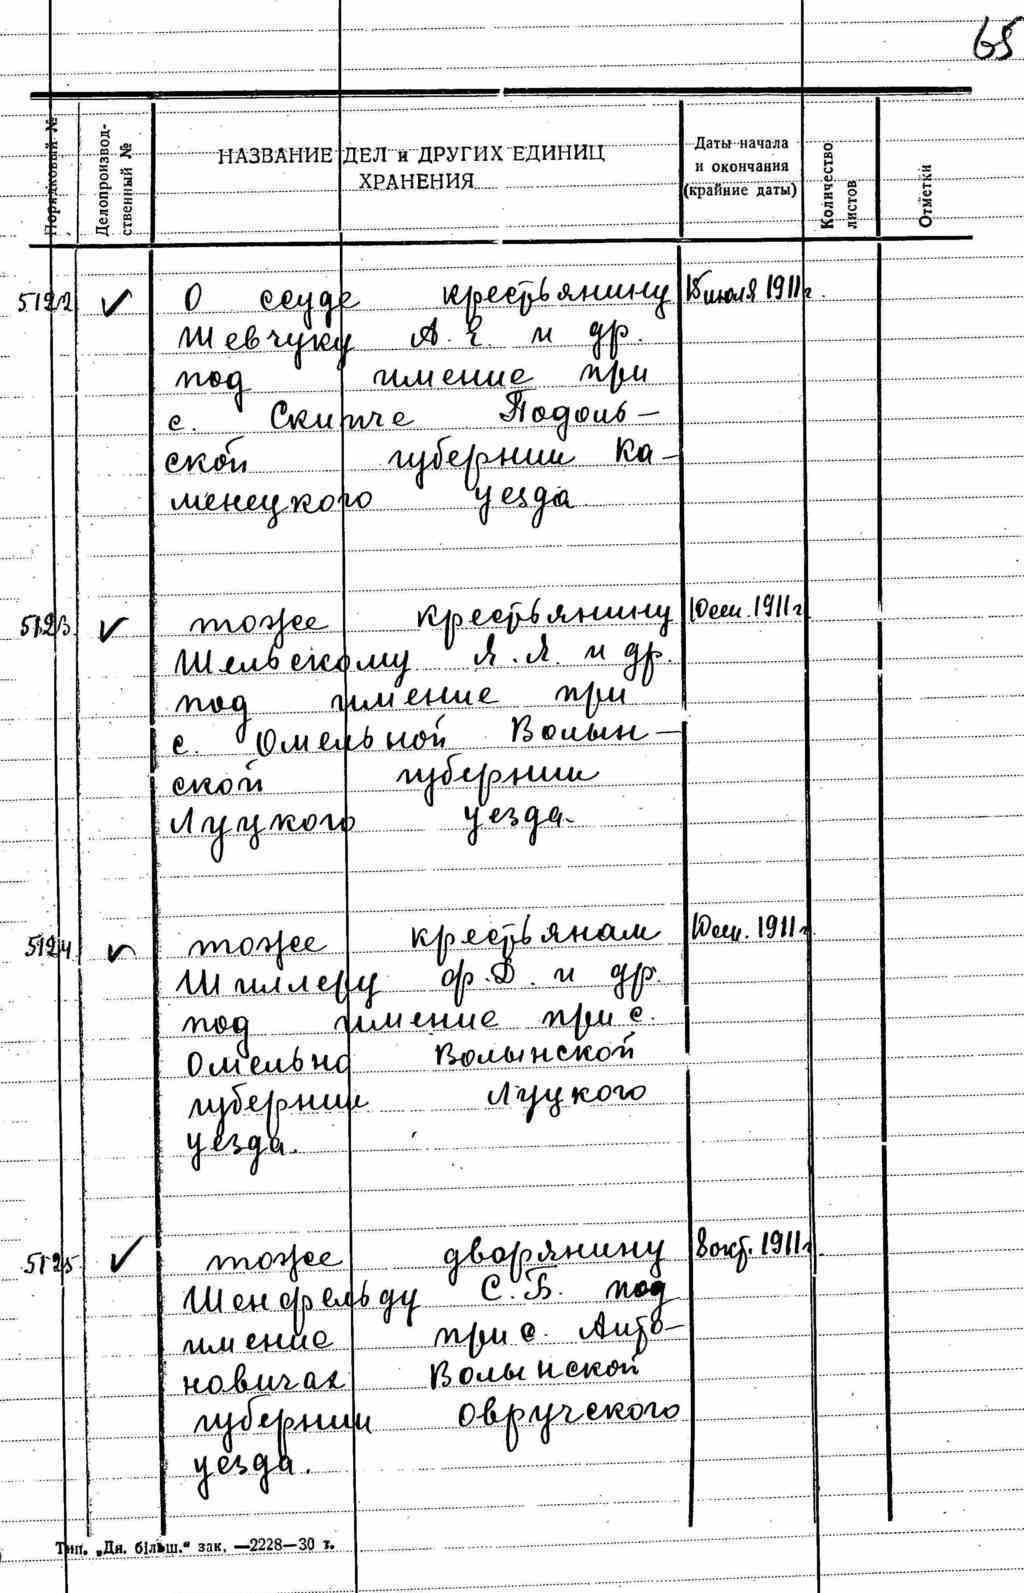 65
Порядковый №
Делопроизвод-
ственный №
НАЗВАНИЕ ДЕЛ и ДРУГИХ ЕДИНИЦ
ХРАНЕНИЯ
Даты начала
и окончания
(крайние даты)
Количество
листов
Отметки
5122 ✓ О ссуде крестьянину 15 июля 1911 г.
Шевчуку А. Е. и др.
под имение при
с. Скипче Подоль-
ской губернии Ка-
менецкого уезда
5123 ✓ тоже крестьянину 10 сен. 1911 г
Шельвскому Я. Я. и др.
под имение при
с. Омельной Волын-
ской губернии
Луцкого уезда.
5124 ✓ тоже крестьянам 10 сен. 1911 г
Шиллеру Ф. Д. и др.
под имение при с.
Омельно Волынской
губернии Луцкого
уезда.
5125 ✓ тоже дворянину 8 окт. 1911 г
Шенфельду С. Б. под
имение при с. Анто-
новичах Волынской
губернии Овручского
уезда.
Тип. „Дн. більш.“ зак. —2228—30 т.